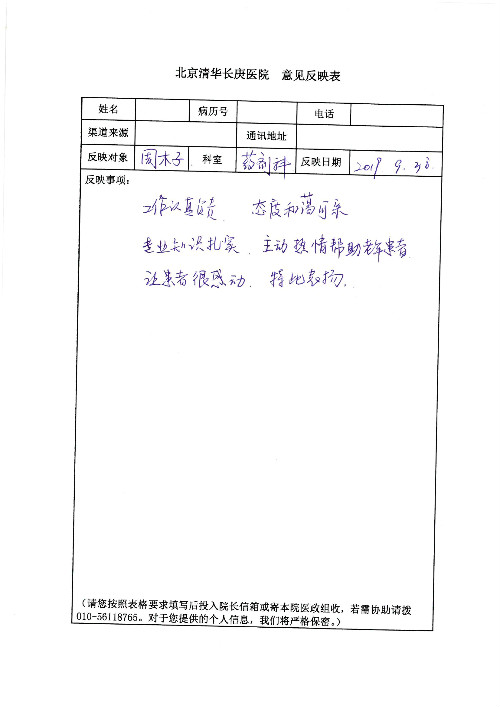 北京清华长庚医院 意见反映表
姓名 病历号 电话
渠道来源 通讯地址
反映对象 周木子 科室 药剂科 反映日期 2019 9. 30
反映事项:
工作认真负责 态度和蔼可亲
专业知识扎实、主动热情帮助老年患者
让患者很感动、特此表扬.
(请您按照表格要求填写后投入院长信箱或寄本院医政组收,若需协助请拨
010-56118765。对于您提供的个人信息,我们将严格保密。)